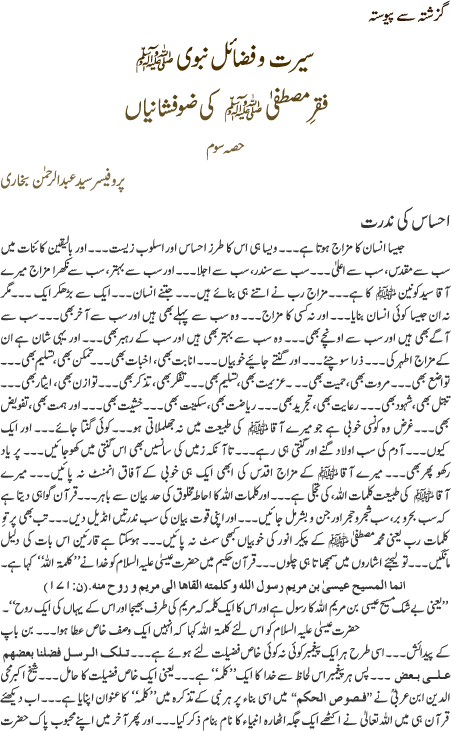 گزشتہ سے پیوستہ
سیرت و فضائل نبوی ﷺ
فقرِ مصطفیٰ ﷺ کی ضوفشانیاں
حصہ سوم
پروفیسر سید عبدالرحمٰن بخاری
احساس کی ندرت
جیسا انسان کا مزاج ہوتا ہے۔۔۔ ویسا ہی اس کا طرز احساس اور اسلوب زیست۔۔۔ اور بالیقین کائنات میں
سب سے مقدس، سب سے اعلیٰ۔۔۔ سب سے سندر، سب سے اجلا۔۔۔ اور سب سے بہتر، سب سے نکھرا مزاج میرے
آقا سید کونین ﷺ کا ہے۔۔۔ مزاج رب نے اتنے ہی بنائے ہیں۔۔۔ جتنے انسان۔۔۔ ایک سے بڑھکر ایک۔۔۔ مگر
نہ ان جیسا کوئی انسان بنایا۔۔۔ اور نہ کسی کا مزاج۔۔۔ وہ سب سے پہلے بھی ہیں اور سب سے آخر بھی۔۔۔ سب سے
آگے بھی ہیں اور سب سے اونچے بھی۔۔۔ وہ سب سے بہتر بھی ہیں اور سب کے رہبر بھی۔۔۔ اور یہی شان ہے ان
کے مزاج اطہر کی۔۔۔ ذرا سوچئے۔۔۔ اور گنتے جائیے خوبیاں۔۔۔ انابت بھی، اخبات بھی۔۔۔ تمکن بھی، تسلیم بھی۔۔۔
تواضع بھی۔۔۔ مروت بھی، حمیت بھی۔۔۔ عزیمت بھی، تسلیم بھی۔۔۔ تفکر بھی، تذکر بھی۔۔۔ توازن بھی، ایثار بھی۔۔۔
تبتل بھی، شہود بھی۔۔۔ رعایت بھی، تجرید بھی۔۔۔ ریاضت بھی، سکینت بھی۔۔۔ خشیت بھی۔۔۔ اور ہمت بھی، تفویض
بھی۔۔۔ غرض وہ کونسی خوبی ہے جو میرے آقا ﷺ کی طبیعت میں نہ جھلملاتی ہو۔۔۔ کوئی گنتا جائے۔۔۔ اور ایک
کیوں۔۔۔ آدم کی سب اولاد گنے اور گنتی ہی رہے۔۔۔ تا آنکہ زمیں کی سانسیں بھی اس گنتی میں کھو جائیں۔۔۔ پر یاد
رکھو پھر بھی۔۔۔ میرے آقا ﷺ کے مزاج اقدس کی ابھی ایک ہی خوبی کے آفاق انمنٹ نہ پائیں۔۔۔ میرے
آقا ﷺ کی طبیعت کلمات اللہ کی تجلی ہے۔۔۔ اور کلمات اللہ کا احاطہ مخلوق کی حد بیان سے باہر۔۔۔ قرآن گواہی دیتا ہے
کہ سب بحر و بر، سب شجر و حجر اور جن و بشر مل جائیں۔۔۔ اور اپنی قوت بیان کی سب ندرتیں انڈیل دیں۔۔۔ تب بھی پرتوِ
کلمات رب یعنی محمد مصطفیٰ ﷺ کے پیکر انور کی خوبیاں کبھی سمٹ نہ پائیں۔۔۔ ہوسکتا ہے قارئین اس بات کی دلیل
مانگیں۔۔۔ تو لیجئے اشاروں میں سمجھاتا ہی چلوں۔۔۔ قرآن حکیم میں حضرت عیسیٰ علیہ السلام کو خدا نے ’’کلمۃ اللہ‘‘ کہا ہے۔
انما المسیح عیسیٰ بن مریم رسول اللہ وکلمتہ القاھا الی مریم و روح منہ۔ (ن:۱۷۱)
’’یعنی بے شک مسیح عیسیٰ بن مریم اللہ کا رسول ہے اور اس کا ایک کلمہ کہ مریم کی طرف بھیجا اور اس کے یہاں کی ایک روح‘‘۔
حضرت عیسیٰ علیہ السلام کو اس لئے کلمۃ اللہ کہا کہ انہیں ایک وصف خاص عطا ہوا۔۔۔ بن باپ
کے پیدائش۔۔۔ اسی طرح ہر ایک پیغمبر کوئی نہ کوئی خاص فضیلت لئے ہوئے ہے۔۔۔ تلک الرسل فضلنا بعضھم
علی بعض ۔۔۔ پس ہر پیغمبر اس لحاظ سے خدا کا ایک ’’کلمہ‘‘ ہے۔۔۔ یعنی ایک خاص فضیلت کا حامل۔۔۔ شیخ اکبر محی
الدین ابن عربیؒ نے ’’فصوص الحکم‘‘ میں اسی بناء پر ہر نبی کے تذکرہ میں ’’کلمہ‘‘ کا عنوان اپنایا ہے۔۔۔ اب دیکھئے
قرآن ہی میں اللہ تعالیٰ نے اکٹھے ایک جگہ اٹھارہ انبیاء کا نام بنام ذکر کیا۔۔۔ اور پھر آخر میں اپنے محبوب پاک حضرت